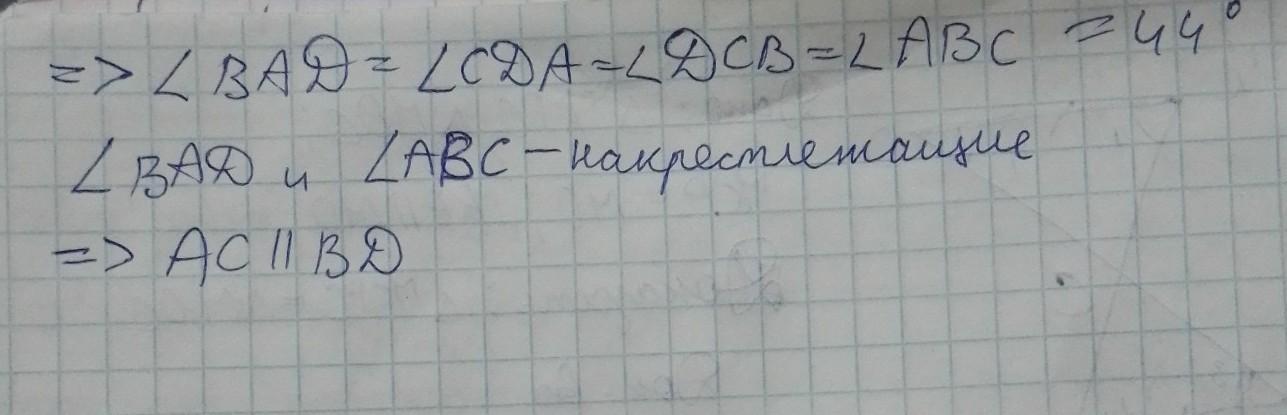 => ∠BAD = ∠CDA = ∠DCB = ∠ABC = 44°
∠BAD и ∠ABC – накрестлежащие
=> AC || BD